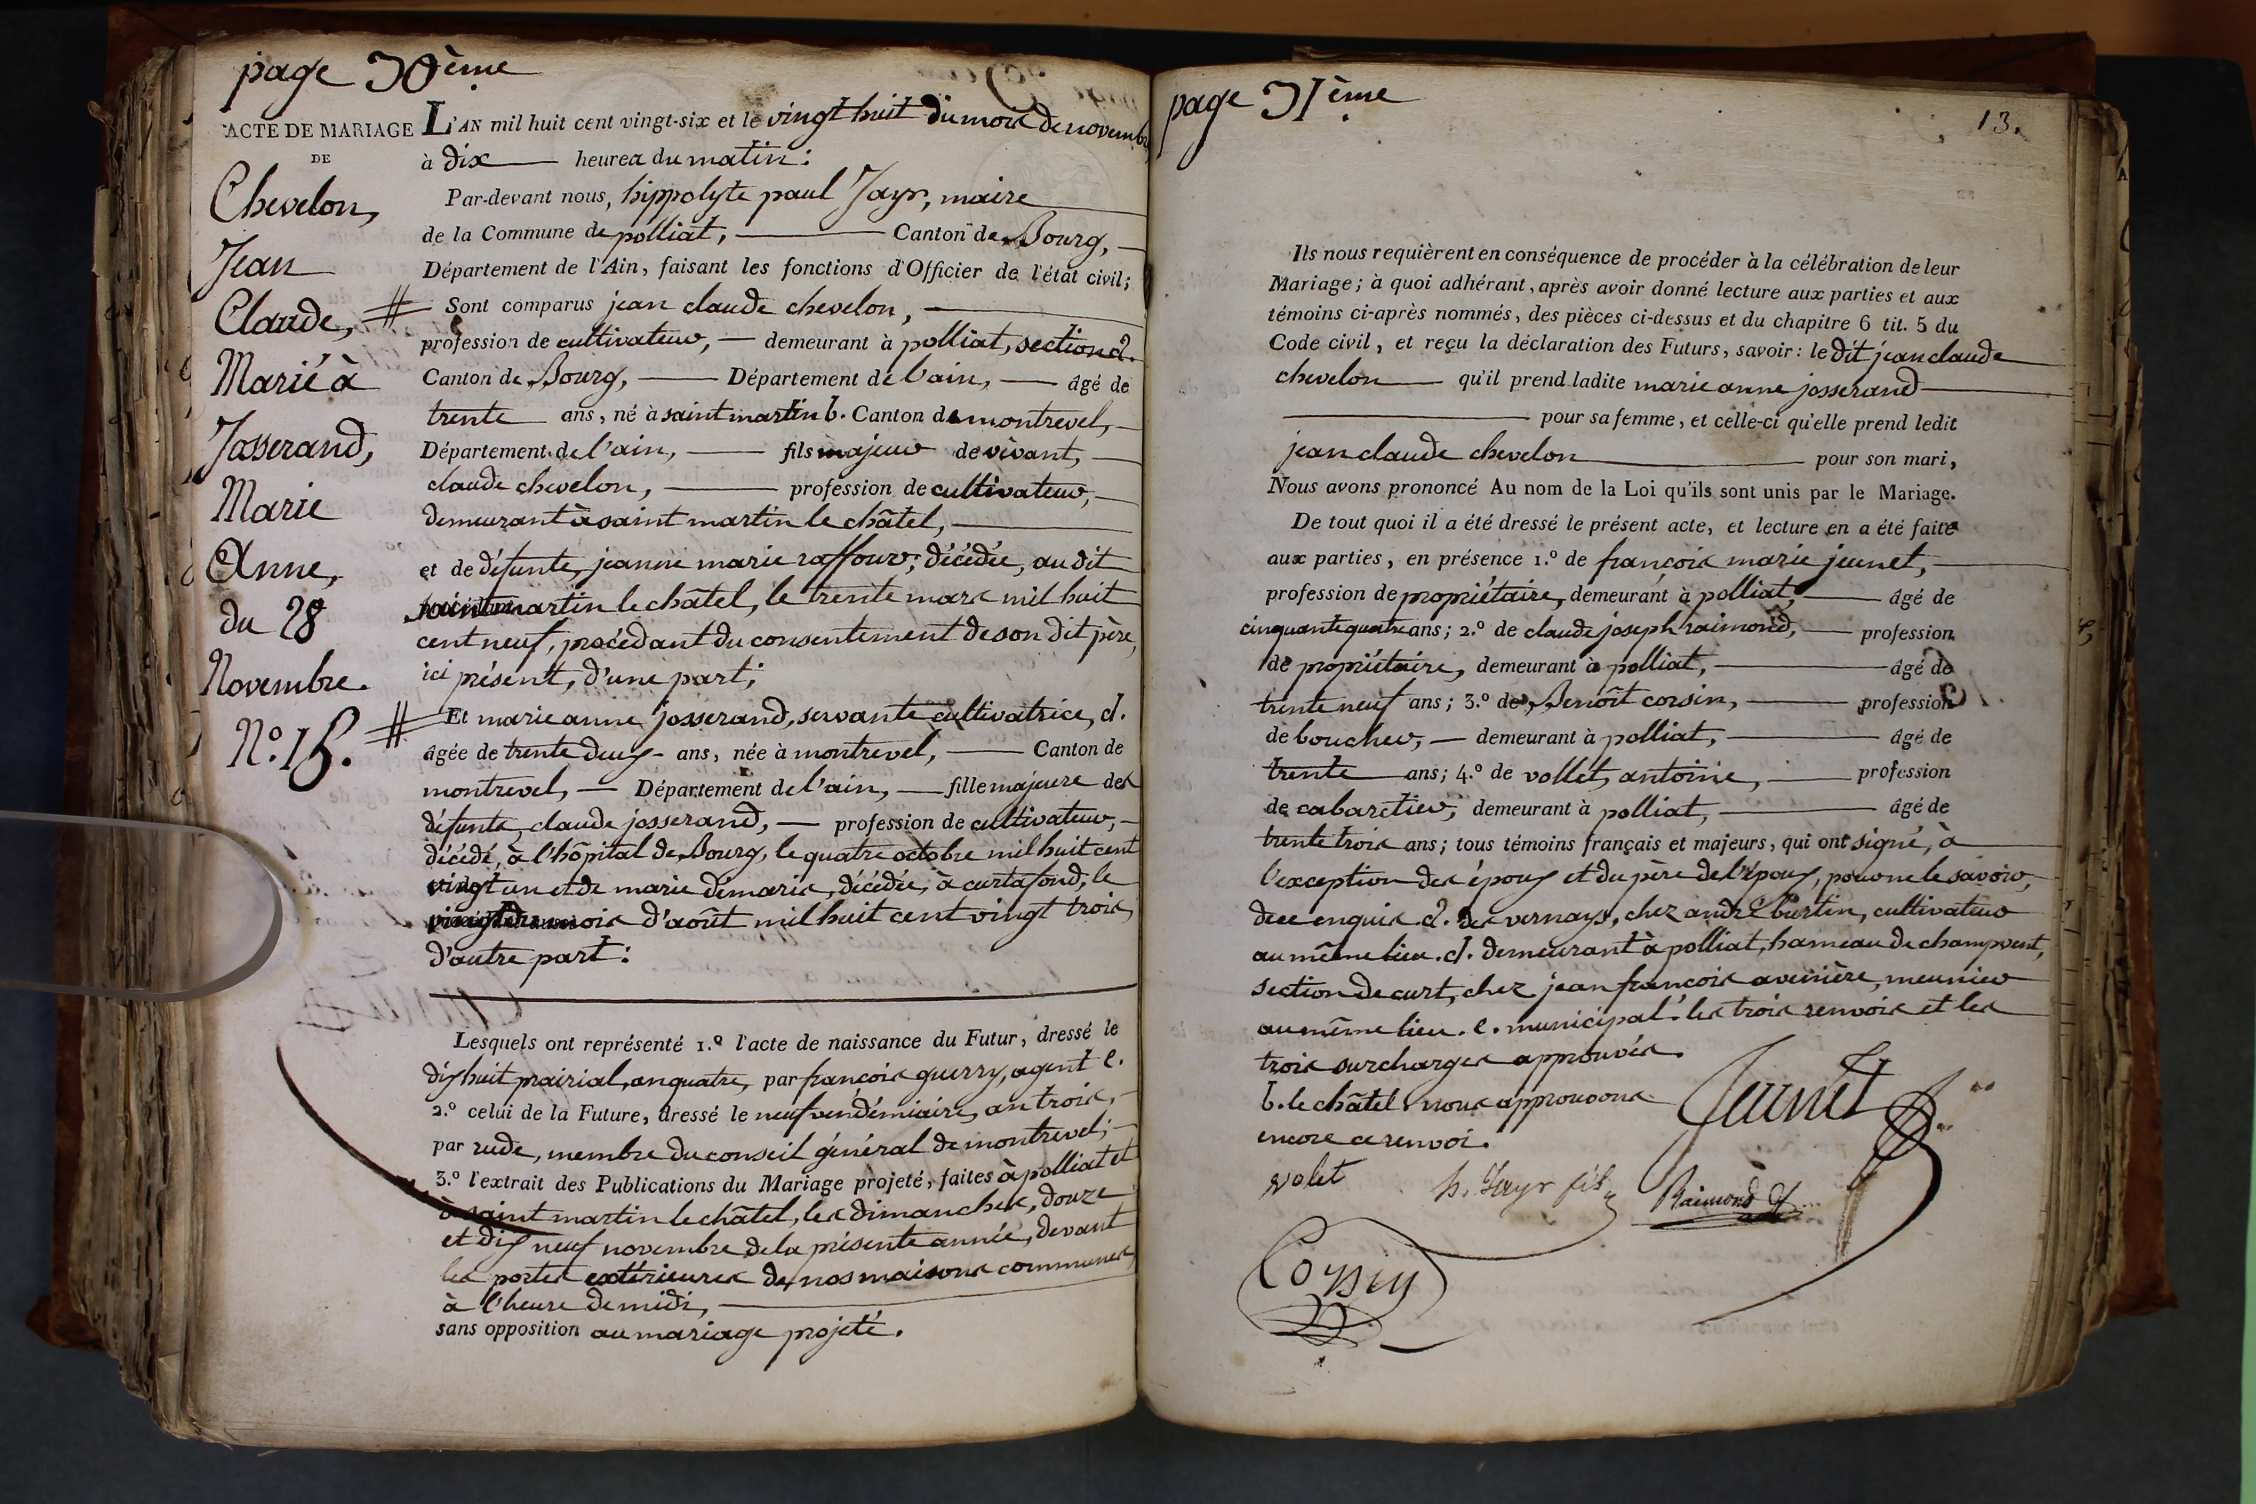 page 30ème
ACTE DE MARIAGE
DE
Chevelon,
Jean
Claude,
Marié à
Josserand,
Marie
Anne,
du 28
Novembre.
N.º 15.
L'AN mil huit cent vingt-six et le vingt huit du mois de novembre
à dix heures du matin :
Par-devant nous, hippolyte paul Jayr, maire
de la Commune de polliat, Canton de Bourg,
Département de l'Ain, faisant les fonctions d'Officier de l'état civil;
Sont comparus jean claude chevelon,
profession de cultivateur, demeurant à polliat, section d.
Canton de Bourg, Département de l'ain, âgé de
trente ans, né à saint martin b. Canton de montrevel,
Département de l'ain, fils majeur de vivant,
claude chevelon, profession de cultivateur,
demeurant à saint martin le châtel,
et de défunte, jeanne marie raffour, décédée, au dit
saint martin le châtel, le trente mars mil huit
cent neuf, procédant du consentement de son dit père,
ici présent, d'une part;
Et marie anne josserand, servante cultivatrice, d.
âgée de trente deux ans, née à montrevel, Canton de
montrevel, Département de l'ain, fille majeure des
défunts, claude josserand, profession de cultivateur,
décédé, à l'hôpital de Bourg, le quatre octobre mil huit cent
vingt un et de marie démaris, décédée, à curtafond, le
vingt mois d'août mil huit cent vingt trois,
d'autre part :
Lesquels ont représenté 1.º l'acte de naissance du Futur, dressé le
dix huit prairial, an quatre, par françois guerry, agent e.
2.º celui de la Future, dressé le neuf vendémiaire, an trois,
par rude, membre du conseil général de montrevel;
3.º l'extrait des Publications du Mariage projeté, faites à polliat et
à saint martin le châtel, les dimanches, douze
et dix neuf novembre de la présente année, devant
les portes extérieures de nos maisons communes,
à l'heure de midi,
sans opposition au mariage projeté.
page 31ème
13.
Ils nous requièrent en conséquence de procéder à la célébration de leur
Mariage; à quoi adhérant, après avoir donné lecture aux parties et aux
témoins ci-après nommés, des pièces ci-dessus et du chapitre 6 tit. 5 du
Code civil, et reçu la déclaration des Futurs, savoir : le dit jean claude
chevelon qu'il prend ladite marie anne josserand
pour sa femme, et celle-ci qu'elle prend ledit
jean claude chevelon pour son mari,
Nous avons prononcé Au nom de la Loi qu'ils sont unis par le Mariage.
De tout quoi il a été dressé le présent acte, et lecture en a été faite
aux parties, en présence 1.º de françois marie jeunet,
profession de propriétaire, demeurant à polliat, âgé de
cinquante quatre ans; 2.º de claude joseph raimond, profession
de propriétaire, demeurant à polliat, âgé de
trente neuf ans; 3.º de Benoît corsin, profession
de boucher, demeurant à polliat, âgé de
trente ans; 4.º de vollet, antoine, profession
de cabaretier, demeurant à polliat, âgé de
trente trois ans; tous témoins français et majeurs, qui ont signé, à
l'exception des époux et du père de l'époux, pour ne le savoir,
de ce enquis. d. des vernays, chez andré burtin, cultivateur
au même lieu. d. demeurant à polliat, hameau de champvent,
section de curt, chez jean françois avenière, meunier
au même lieu. e. municipal. les trois renvois et les
trois surcharges approuvés.
b. le châtel. nous approuvons
encore ce renvoi.
Jeunet
volet
h. Jayr fils
Raimond
Corsin